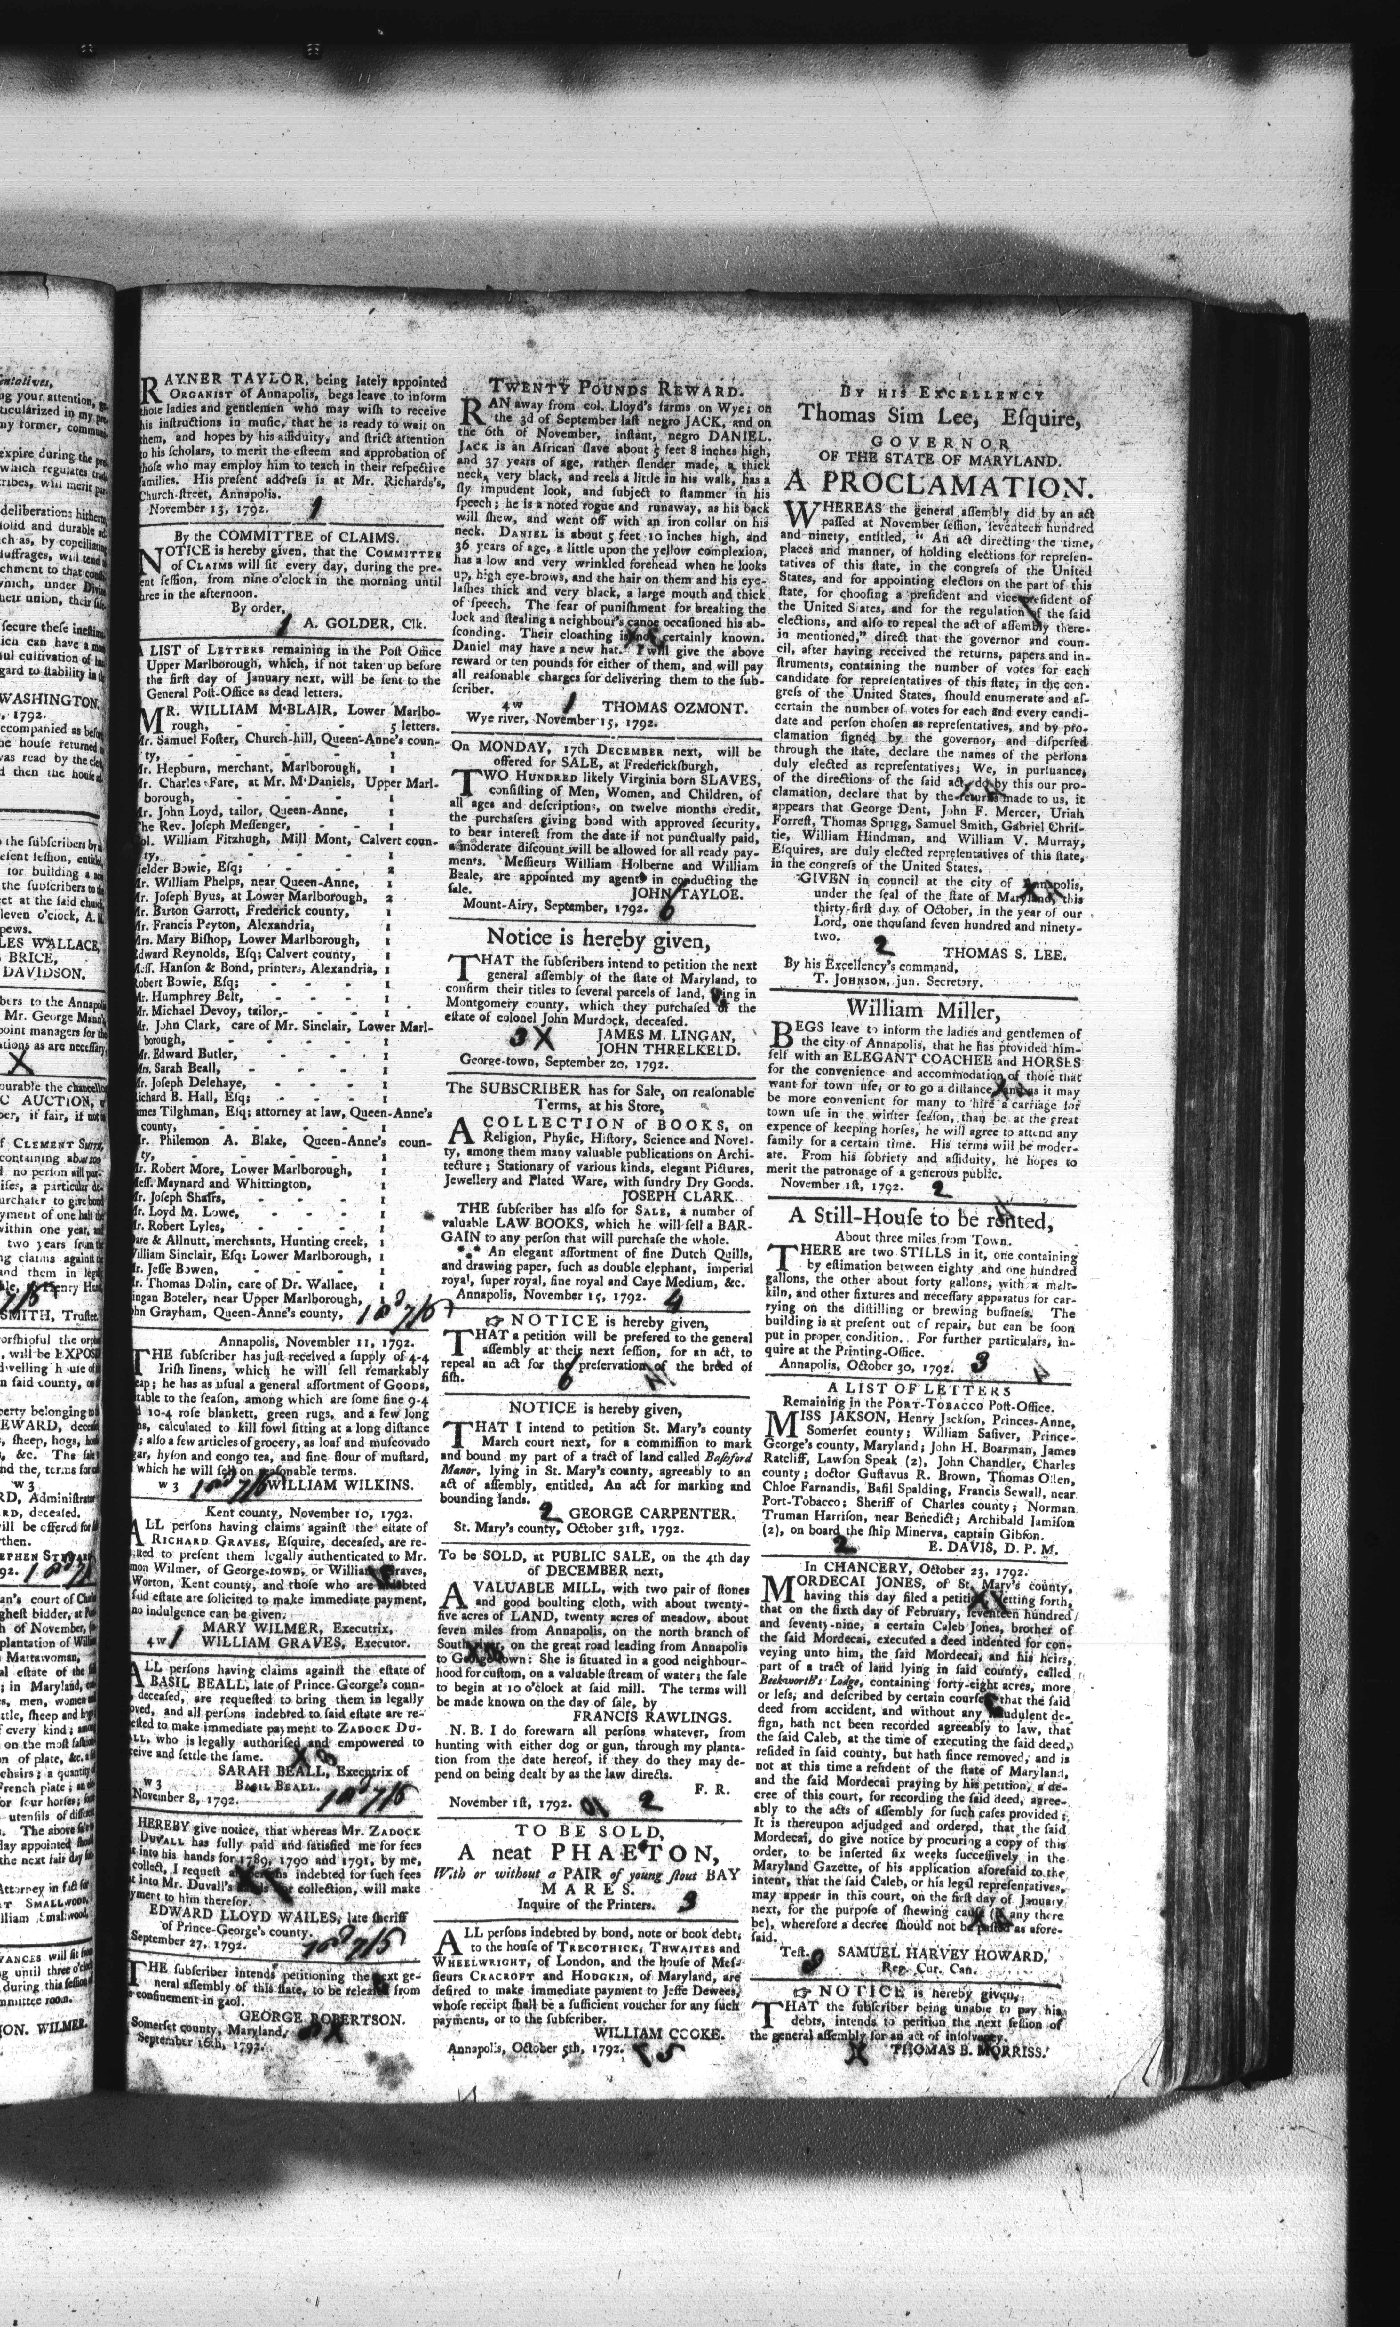 RAYNER TAYLOR, being lately appointed
ORGANIST of Annapolis, begs leave to inform
those ladies and gentlemen who may wiſh to receive
his inſtructions in muſic, that he is ready to wait on
them, and hopes by his aſſiduity, and ſtrict attention
to his ſcholars, to merit the eſteem and approbation of
thoſe who may employ him to teach in their reſpective
families. His preſent addreſs is at Mr. Richards's,
Church-ſtreet, Annapolis.
November 13, 1792.
1
By the COMMITTEE of CLAIMS.
NOTICE is hereby given, that the COMMITTEE
of CLAIMS will ſit every day, during the pre-
ent ſeſſion, from nine o'clock in the morning until
three in the afternoon.
By order,
1 A. GOLDER, Clk.
A LIST of LETTERS remaining in the Poſt Office
Upper Marlborough, which, if not taken up before
the firſt day of January next, will be ſent to the
General Poſt-Office as dead letters.
MR. WILLIAM M'BLAIR, Lower Marlbo-
rough, - - - 5 letters.
Mr. Samuel Foſter, Church-hill, Queen-Anne's coun-
ty, - - - - 1
Mr. Hepburn, merchant, Marlborough, 1
Mr. Charles Fare, at Mr. M'Daniels, Upper Marl-
borough, - - - 1
Mr. John Loyd, tailor, Queen-Anne, 1
The Rev. Joseph Meſſenger, - - 1
Col. William Fitzhugh, Mill Mont, Calvert coun-
ty, - - - - 1
Fielder Bowie, Eſq; - - - 2
Mr. William Phelps, near Queen-Anne, 1
Mr. Joseph Byus, at Lower Marlborough, 2
Mr. Barton Garrott, Frederick county, 1
Mr. Francis Peyton, Alexandria, 1
Mrs. Mary Biſhop, Lower Marlborough, 1
Edward Reynolds, Eſq; Calvert county, 1
Meſſ. Hanſon & Bond, printers, Alexandria, 1
Robert Bowie, Eſq; - - - 1
Mr. Humphrey Belt, - - - 1
Mr. Michael Devoy, tailor, - - - 1
Mr. John Clark, care of Mr. Sinclair, Lower Marl-
borough, - - - - 1
Mr. Edward Butler, - - - 1
Mrs. Sarah Beall, - - - 1
Mr. Joſeph Delehaye, - - - 1
Richard B. Hall, Eſq; - - - 1
James Tilghman, Eſq; attorney at law, Queen-Anne's
county, - - - - 1
Mr. Philemon A. Blake, Queen-Anne's coun-
ty, - - - - 1
Mr. Robert More, Lower Marlborough, 1
Meſſ. Maynard and Whittington, 1
Mr. Joſeph - - - 1
Mr. Loyd M. Lowe, - - - 1
Mr. Robert Lyles, - - - 1
& Allnutt, merchants, Hunting creek, 1
William Sinclair, Eſq; Lower Marlborough, 1
Mr. Jeſſe Bowen, - - - 1
Mr. Thomas Dolin, care of Dr. Wallace, 1
Boteler, near Upper Marlborough, 1
John Grayham, Queen-Anne's county,
Annapolis, November 11, 1792.
THE ſubſcriber has juſt received a ſupply of 4-4
Iriſh linens, which he will ſell remarkably
cheap; he has as uſual a general aſſortment of GOODS,
ſuitable to the ſeaſon, among which are ſome fine 9-4
and 10-4 roſe blankett, green rugs, and a few long
guns, calculated to kill fowl ſitting at a long diſtance
; alſo a few articles of grocery, as loaf and muſcovado
ſugar, hyſon and congo tea, and fine flour of muſtard,
which he will ſell on reaſonable terms.
w 3 WILLIAM WILKINS.
Kent county, November 10, 1792.
ALL perſons having claims againſt the eſtate of
RICHARD GRAVES, Eſquire, deceaſed, are re-
to preſent them legally authenticated to Mr.
Wilmer, of George-town, or William Graves,
Worton, Kent county, and thoſe who are indebted
ſaid eſtate are ſolicited to make immediate payment,
no indulgence can be given.
MARY WILMER, Executrix,
4w 1 WILLIAM GRAVES, Executor.
ALL perſons having claims againſt the eſtate of
BASIL BEALL, late of Prince-George's coun-
deceaſed, are requeſted to bring them in legally
proved, and all perſons indebted to ſaid eſtate are re-
queſted to make immediate payment to ZADOCK DU-
VALL, who is legally authoriſed and empowered to
receive and ſettle the ſame.
SARAH BEALL, Executrix of
w 3 BASIL BEALL.
November 8, 1792.
I HEREBY give notice, that whereas Mr. ZADOCK
DUVALL has fully paid and ſatisfied me for fees
put into his hands for 1789, 1790 and 1791, by me,
collect, I requeſt all perſons indebted for ſuch fees
put into Mr. Duvall's collection, will make
payment to him therefor.
EDWARD LLOYD WAILES, late ſheriff
of Prince-George's county.
September 27, 1792.
THE ſubſcriber intends petitioning the next ge-
neral aſſembly of this ſtate, to be releaſed from
confinement in gaol.
GEORGE ROBERTSON.
Somerſet county, Maryland,
September 16th, 1792.
TWENTY POUNDS REWARD.
RAN away from col. Lloyd's farms on Wye; on
the 3d of September laſt negro JACK, and on
the 6th of November, inſtant, negro DANIEL.
JACK is an African ſlave about 5 feet 8 inches high,
and 37 years of age, rather ſlender made, a thick
neck, very black, and reels a little in his walk, has a
ſly impudent look, and ſubject to ſtammer in his
ſpeech; he is a noted rogue and runaway, as his back
will ſhew, and went off with an iron collar on his
neck. DANIEL is about 5 feet 10 inches high, and
36 years of age, a little upon the yellow complexion,
has a low and very wrinkled forehead when he looks
up, high eye-brows, and the hair on them and his eye-
laſhes thick and very black, a large mouth and thick
of ſpeech. The fear of puniſhment for breaking the
lock and ſtealing a neighbour's canoe occaſioned his ab-
ſconding. Their cloathing is not certainly known.
Daniel may have a new hat. I will give the above
reward or ten pounds for either of them, and will pay
all reaſonable charges for delivering them to the ſub-
ſcriber.
4w 1 THOMAS OZMONT.
Wye river, November 15, 1792.
On MONDAY, 17th DECEMBER next, will be
offered for SALE, at Frederickſburgh,
TWO HUNDRED likely Virginia born SLAVES,
conſiſting of Men, Women, and Children, of
all ages and deſcriptions, on twelve months credit,
the purchaſers giving bond with approved ſecurity,
to bear intereſt from the date if not punctually paid,
a moderate diſcount will be allowed for all ready pay-
ments. Meſſieurs William Holberne and William
Beale, are appointed my agents in conducting the
ſale. JOHN TAYLOE.
Mount-Airy, September, 1792. 6
Notice is hereby given,
THAT the ſubſcribers intend to petition the next
general aſſembly of the ſtate of Maryland, to
confirm their titles to ſeveral parcels of land, lying in
Montgomery county, which they purchaſed of the
eſtate of colonel John Murdock, deceaſed.
3 X JAMES M. LINGAN,
JOHN THRELKELD.
George-town, September 20, 1792.
The SUBSCRIBER has for Sale, on reaſonable
Terms, at his Store,
A COLLECTION of BOOKS, on
Religion, Phyſic, Hiſtory, Science and Novel-
ty, among them many valuable publications on Archi-
tecture; Stationary of various kinds, elegant Pictures,
Jewellery and Plated Ware, with ſundry Dry Goods.
JOSEPH CLARK.
THE ſubſcriber has alſo for SALE, a number of
valuable LAW BOOKS, which he will ſell a BAR-
GAIN to any perſon that will purchaſe the whole.
*** An elegant aſſortment of fine Dutch Quills,
and drawing paper, ſuch as double elephant, imperial
royal, ſuper royal, fine royal and Caye Medium, &c.
Annapolis, November 15, 1792. 4
☞ NOTICE is hereby given,
THAT a petition will be prefered to the general
aſſembly at their next ſeſſion, for an act, to
repeal an act for the preſervation of the breed of
fiſh. 6
NOTICE is hereby given,
THAT I intend to petition St. Mary's county
March court next, for a commiſſion to mark
and bound my part of a tract of land called Baſsford
Manor, lying in St. Mary's county, agreeably to an
act of aſſembly, entitled, An act for marking and
bounding lands.
2 GEORGE CARPENTER.
St. Mary's county, October 31ſt, 1792.
To be SOLD, at PUBLIC SALE, on the 4th day
of DECEMBER next,
A VALUABLE MILL, with two pair of ſtones
and good boulting cloth, with about twenty-
five acres of LAND, twenty acres of meadow, about
ſeven miles from Annapolis, on the north branch of
South river, on the great road leading from Annapolis
to George-town: She is ſituated in a good neighbour-
hood for cuſtom, on a valuable ſtream of water; the ſale
to begin at 10 o'clock at ſaid mill. The terms will
be made known on the day of ſale, by
FRANCIS RAWLINGS.
N. B. I do forewarn all perſons whatever, from
hunting with either dog or gun, through my planta-
tion from the date hereof, if they do they may de-
pend on being dealt by as the law directs.
F. R.
November 1ſt, 1792. 2
TO BE SOLD,
A neat PHAETON,
With or without a PAIR of young ſtout BAY
MARES.
Inquire of the Printers. 3
ALL perſons indebted by bond, note or book debt,
to the houſe of TRECOTHICK, THWAITES and
WHEELWRIGHT, of London, and the houſe of Meſ-
ſieurs CRACROFT and HODGKIN, of Maryland, are
deſired to make immediate payment to Jeſſe Dewees,
whoſe receipt ſhall be a ſufficient voucher for any ſuch
payments, or to the ſubſcriber.
WILLIAM COOKE.
Annapolis, October 5th, 1792.
BY HIS EXCELLENCY
Thomas Sim Lee, Eſquire,
GOVERNOR
OF THE STATE OF MARYLAND.
A PROCLAMATION.
WHEREAS the general aſſembly did by an act
paſſed at November ſeſſion, ſeventeen hundred
and ninety, entitled, "An act directing the time,
places and manner, of holding elections for repreſen-
tatives of this ſtate, in the congreſs of the United
States, and for appointing electors on the part of this
ſtate, for chooſing a preſident and vice-preſident of
the United States, and for the regulation of the ſaid
elections, and alſo to repeal the act of aſſembly there-
in mentioned," direct that the governor and coun-
cil, after having received the returns, papers and in-
ſtruments, containing the number of votes for each
candidate for repreſentatives of this ſtate, in the con-
greſs of the United States, ſhould enumerate and aſ-
certain the number of votes for each and every candi-
date and perſon choſen as repreſentatives, and by pro-
clamation ſigned by the governor, and diſperſed
through the ſtate, declare the names of the perſons
duly elected as repreſentatives; We, in purſuance,
of the directions of the ſaid act, do by this our pro-
clamation, declare that by the returns made to us, it
appears that George Dent, John F. Mercer, Uriah
Forreſt, Thomas Sprigg, Samuel Smith, Gabriel Chriſ-
tie, William Hindman, and William V. Murray,
Eſquires, are duly elected repreſentatives of this ſtate,
in the congreſs of the United States.
GIVEN in council at the city of Annapolis,
under the ſeal of the ſtate of Maryland, this
thirty-firſt day of October, in the year of our
Lord, one thouſand ſeven hundred and ninety-
two. 2
THOMAS S. LEE.
By his Excellency's command,
T. JOHNSON, jun. Secretary.
William Miller,
BEGS leave to inform the ladies and gentlemen of
the city of Annapolis, that he has provided him-
ſelf with an ELEGANT COACHEE and HORSES
for the convenience and accommodation of thoſe that
want for town uſe, or to go a diſtance, and as it may
be more convenient for many to hire a carriage for
town uſe in the winter ſeaſon, than be at the great
expence of keeping horſes, he will agree to attend any
family for a certain time. His terms will be moder-
ate. From his ſobriety and aſſiduity, he hopes to
merit the patronage of a generous public.
November 1ſt, 1792. 2
A Still-Houſe to be rented,
About three miles from Town.
THERE are two STILLS in it, one containing
by eſtimation between eighty and one hundred
gallons, the other about forty gallons, with a melt-
kiln, and other fixtures and neceſſary apparatus for car-
rying on the diſtilling or brewing buſineſs. The
building is at preſent out of repair, but can be ſoon
put in proper condition. For further particulars, in-
quire at the Printing-Office.
Annapolis, October 30, 1792. 3
A LIST OF LETTERS
Remaining in the PORT-TOBACCO Poſt-Office.
MISS JAKSON, Henry Jackſon, Princes-Anne,
Somerſet county; William Saſiver, Prince-
George's county, Maryland; John H. Boarman, James
Ratcliff, Lawſon Speak (2), John Chandler, Charles
county; doctor Guſtavus R. Brown, Thomas Oſlen,
Chloe Farnandis, Baſil Spalding, Francis Sewall, near
Port-Tobacco; Sheriff of Charles county; Norman
Truman Harriſon, near Benedict; Archibald Jamiſon
(2), on board the ſhip Minerva, captain Gibſon.
2 E. DAVIS, D. P. M.
In CHANCERY, October 23, 1792.
MORDECAI JONES, of St. Mary's county,
having this day filed a petition ſetting forth,
that on the ſixth day of February, ſeventeen hundred
and ſeventy-nine, a certain Caleb Jones, brother of
the ſaid Mordecai, executed a deed indented for con-
veying unto him, the ſaid Mordecai, and his heirs,
part of a tract of land lying in ſaid county, called
Beckworth's Lodge, containing forty-eight acres, more
or leſs, and deſcribed by certain courſes, that the ſaid
deed from accident, and without any fraudulent de-
ſign, hath not been recorded agreeably to law, that
the ſaid Caleb, at the time of executing the ſaid deed,
reſided in ſaid county, but hath ſince removed, and is
not at this time a reſident of the ſtate of Maryland,
and the ſaid Mordecai praying by his petition, a de-
cree of this court, for recording the ſaid deed, agree-
ably to the acts of aſſembly for ſuch caſes provided;
It is thereupon adjudged and ordered, that the ſaid
Mordecai, do give notice by procuring a copy of this
order, to be inſerted ſix weeks ſucceſſively in the
Maryland Gazette, of his application aforeſaid to the
intent, that the ſaid Caleb, or his legal repreſentatives,
may appear in this court, on the firſt day of January
next, for the purpoſe of ſhewing cauſe (if any there
be), wherefore a decree ſhould not be paſſed as afore-
ſaid.
Teſt. SAMUEL HARVEY HOWARD,
Reg. Cur. Can.
☞ NOTICE is hereby given,
THAT the ſubſcriber being unable to pay his
debts, intends to petition the next ſeſſion of
the general aſſembly for an act of inſolvency.
THOMAS B. MORRISS.